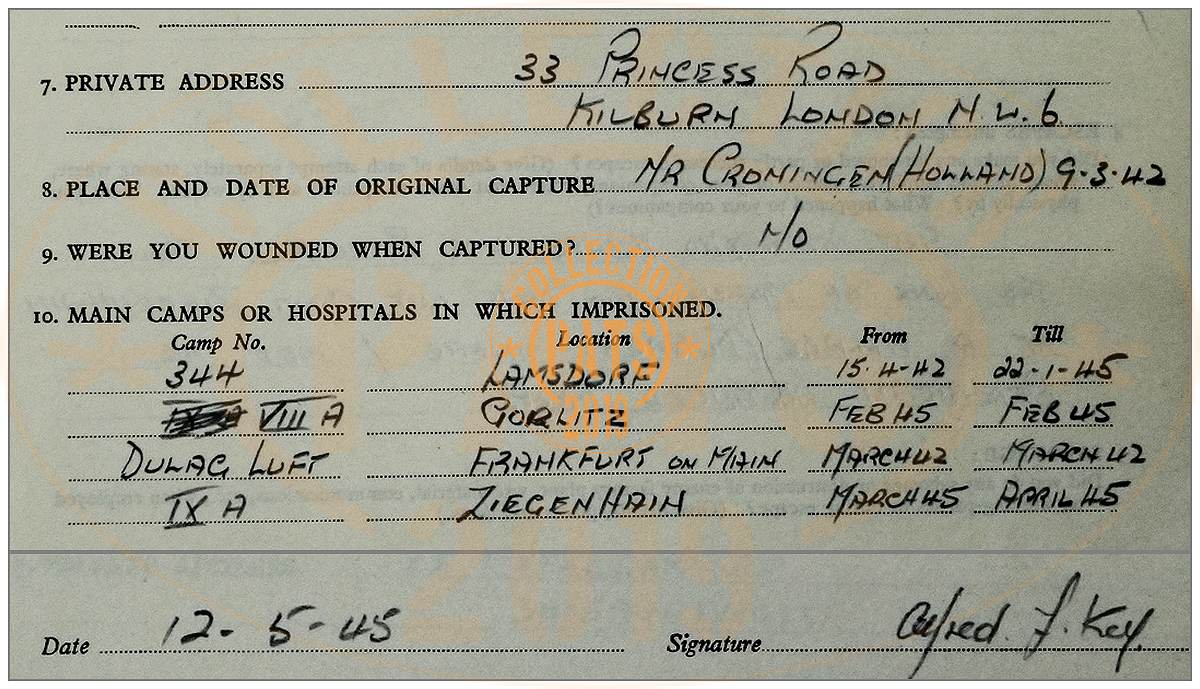 7. PRIVATE ADDRESS 33 PRINCESS ROAD
KILBURN LONDON N.W.6
8. PLACE AND DATE OF ORIGINAL CAPTURE NR CRONINGEN (HOLLAND) 9.3.42
9. WERE YOU WOUNDED WHEN CAPTURED? NO
10. MAIN CAMPS OR HOSPITALS IN WHICH IMPRISONED.
Camp No. Location From Till
344 LAMSDORF 15.4-42 22-1-45
VIII A GORLITZ FEB 45 FEB 45
DULAG LUFT FRANKFURT ON MAIN MARCH 42 MARCH 42
IX A ZIEGENHAIN MARCH 45 APRIL 45
COLLECTION
PATS
2019
Date 12-5-45 Signature Alfred J. Key.